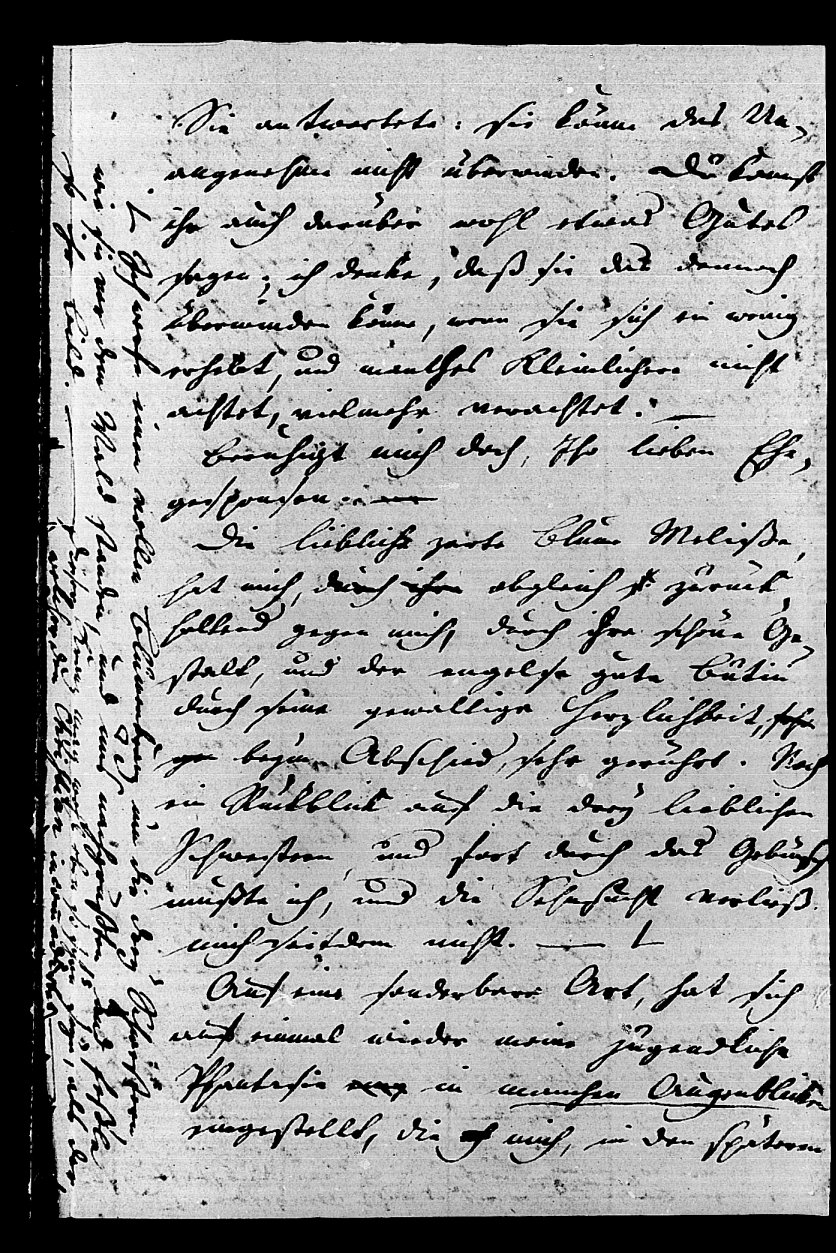 Sie antwortete: sie könne das Un-
angenehme nicht überwinden. Du kannst
ihr auch darüber wohl etwas Gutes
sagen; ich denke, daß sie das dennoch
überwinden könne, wenn sie sich ein wenig
erhebt, und manches Kleinlichere nicht
achtet, vielmehr verachtet. —
Beruhigt mich doch, Ihr lieben Ehe-
gesponsen. —
Die liebliche zarte Blume Melisse,
hat mich, durch ihre obgleich zurück-
haltend gegen mich, durch ihre schöne Ge-
stalt, und der engelsgute
durch seine gewaltige Herzlichkeit,
beym Abschied, sehr gerührt. Noch
ein Rückblick auf die drey lieblichen
Schwestern, und fort durch das Gebüsch
mußte ich, und die Sehnsucht verließ
mich seitdem nicht. —
Auf eine sonderbare Art, hat sich
auf einmal wieder meine jugendliche
Phantasie in manchen Augenblicken
eingestellt, die mich, in den späteren
Ich werfe einen vollen Blumenkranz um die drey Schwestern
wie sie vor dem Wald standen, und uns nachgrüßten
ihr Bild. —